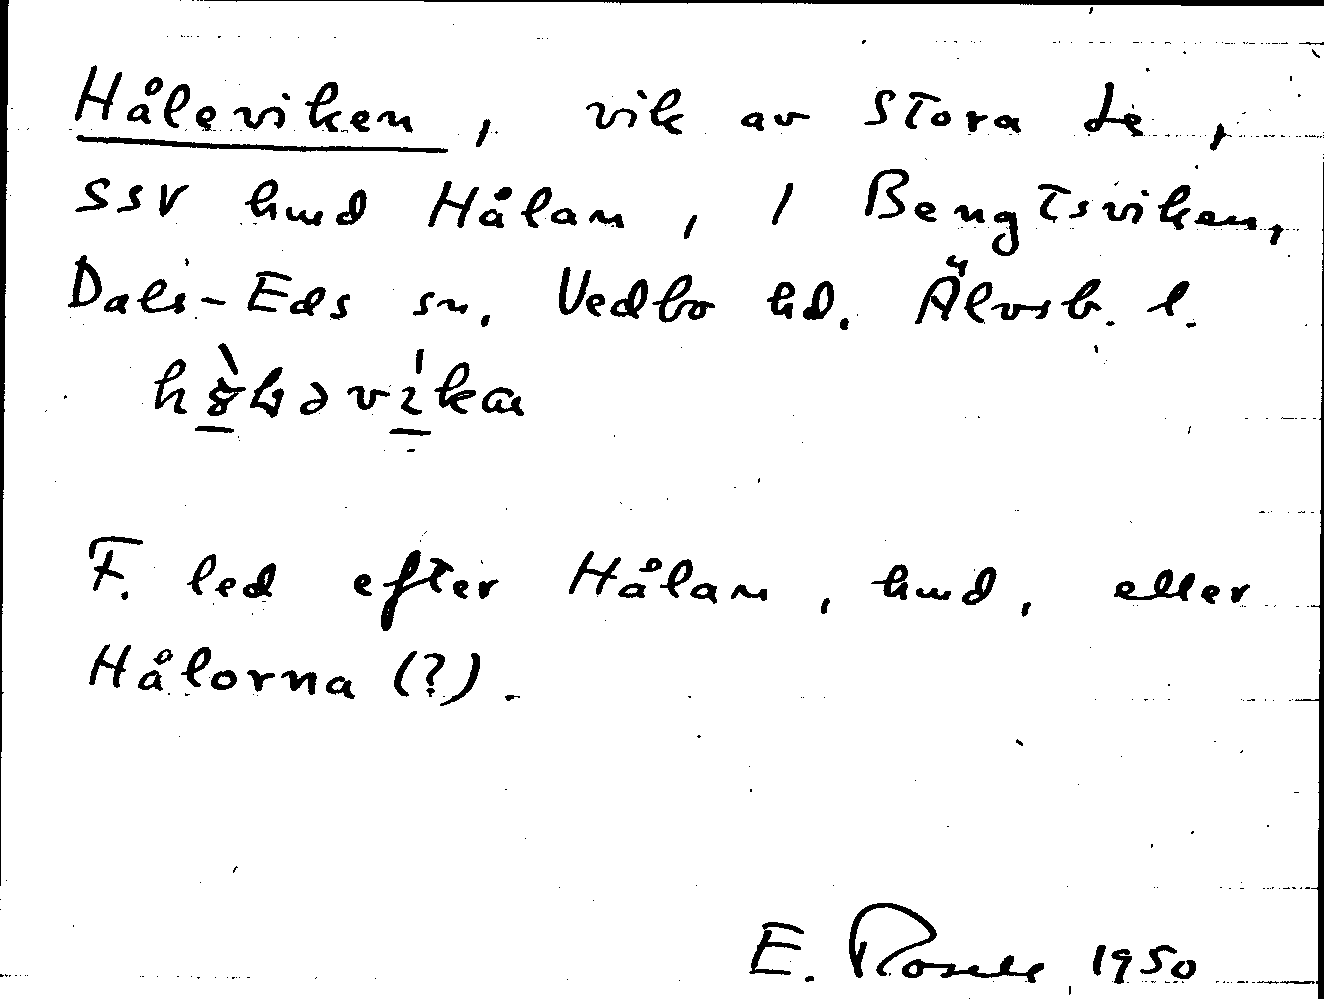 Håleviken, vik av Stora Le,
SSV hmd Hålan, i Bengtsviken,
Dals-Eds sn. Vedbo hd. Älvsb. l.
F. led efter Hålan, hmd, eller
Hålorna (?).
E. Rosell 1950